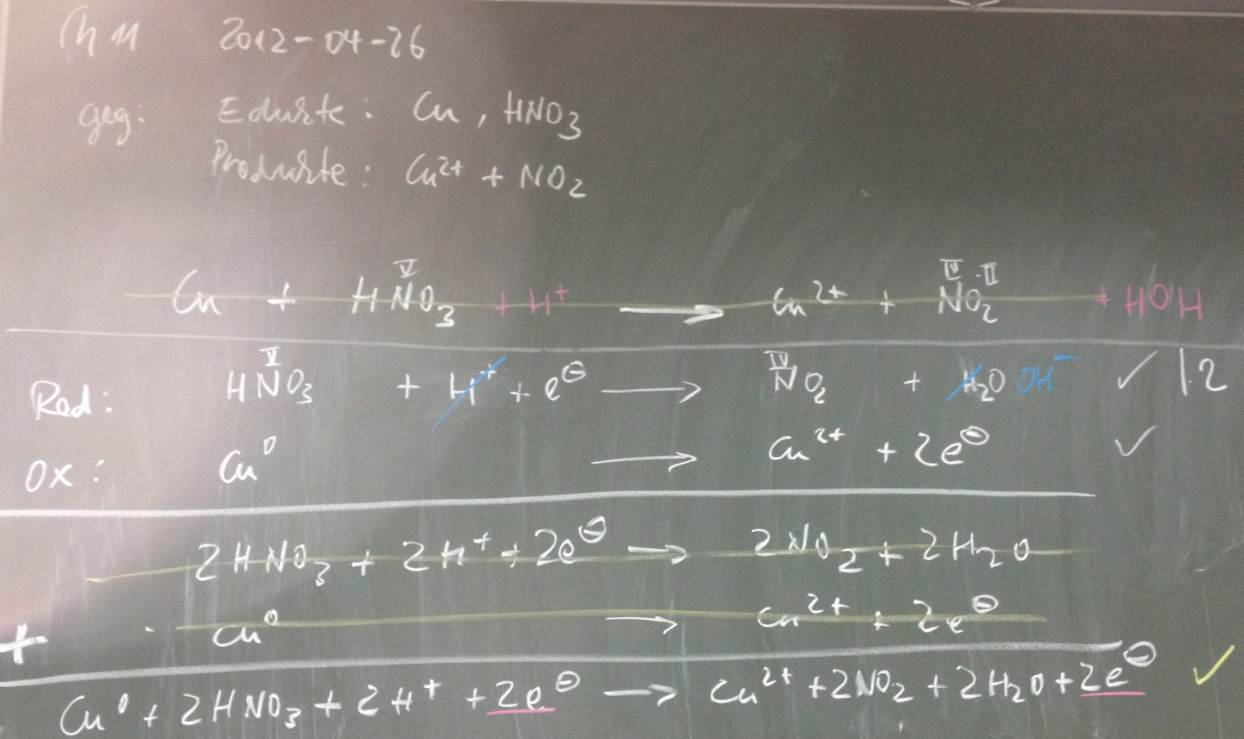 Ch 11 2012-04-26
geg: Edukte: Cu, HNO₃
Produkte: Cu²⁺ + NO₂
V IV -II
Cu + HNO₃ + H⁺ ⟶ Cu²⁺ + NO₂ + HOH
V IV
Red: HNO₃ + H⁺ + e⊖ ⟶ NO₂ + H₂O OH⁻ ✓ 1.2
OX: Cu⁰ ⟶ Cu²⁺ + 2e⊖ ✓
2HNO₃ + 2H⁺ + 2e⊖ ⟶ 2NO₂ + 2H₂O
+ Cu⁰ ⟶ Cu²⁺ + 2e⊖
Cu⁰ + 2HNO₃ + 2H⁺ + 2e⊖ ⟶ Cu²⁺ + 2NO₂ + 2H₂O + 2e⊖ ✓